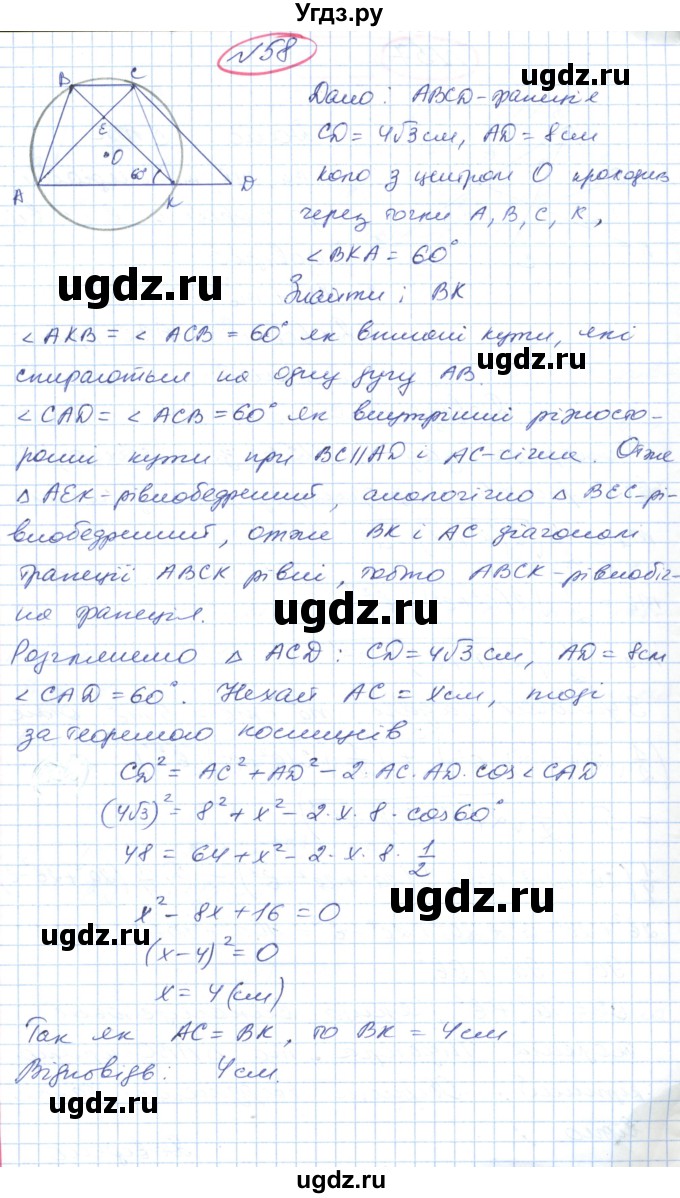 Угдз.ру
№58
B C
E
O
60°
A K D
Дано: ABCD-трапеція
CD = 4√3 см, AD = 8 см
коло з центром O проходить
через точки A, B, C, K,
∠BKA = 60°
Знайти: BK
∠AKB = ∠ACB = 60° як вписані кути, які
спираються на одну дугу AB.
∠CAD = ∠ACB = 60° як внутрішні різносто-
ронні кути при BC||AD і AC-січна. Отже
△AEK-рівнобедрений, аналогічно △BEC-рі-
внобедрений, отже BK і AC діагоналі
трапеції ABCK рівні, тобто ABCK-рівнобіч-
на трапеція.
Розглянемо △ACD: CD=4√3 см, AD=8см
∠CAD=60°. Нехай AC=xсм, тоді
за теоремою косинусів
CD² = AC²+AD²-2·AC·AD·cos∠CAD
(4√3)² = 8²+x²-2·x·8·cos60°
48 = 64+x²-2·x·8·1/2
x²-8x+16=0
(x-4)²=0
x=4(см)
Так як AC=BK, то BK=4см
Відповідь: 4см.
ugdz.ru
ugdz.ru
ugdz.ru
ugdz.ru
ugdz.ru
ugdz.ru
ugdz.ru
ugdz.ru
ugdz.ru
Угдз.ру